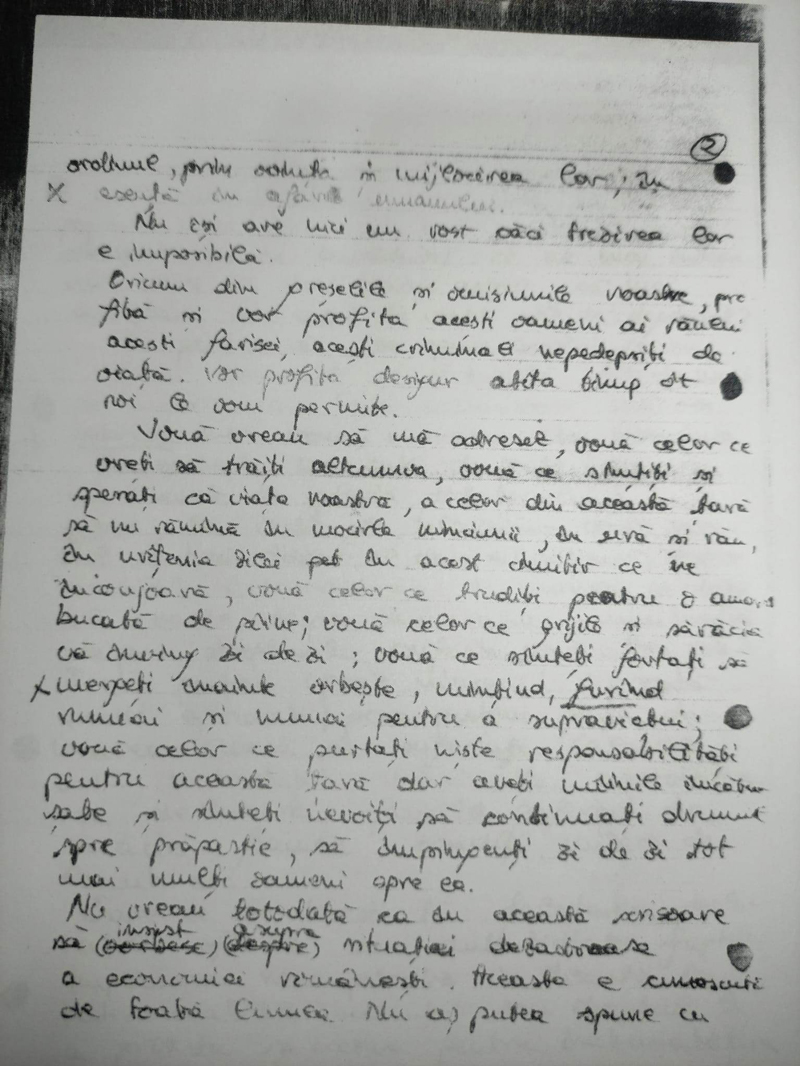 2
ordinul, prin voința și mijlocirea lor; în
x esență în afara umanului.
Nu își are nici un rost căci trezirea lor
e imposibilă.
Oricum din greșelile și omisiunile noastre, pro
fită și vor profita acești oameni ai răului
acești farisei, acești criminali nepedepsiți de
viață. Vor profita desigur atîta timp cît
noi le vom permite.
Vouă vreau să mă adresez, vouă celor ce
vreți să trăiți altcumva, vouă ce simțiți și
sperați ca viața noastră, a celor din această țară
să nu rămînă în mocirla minciunii, în ură și rău,
în urîțenia zilei pe în acest cimitir ce ne
înconjoară, vouă celor ce trudiți pentru o
bucată de pîine; vouă celor ce grijile și sărăcia
vă înving zi de zi; vouă ce sînteți forțați să
x mergeți înainte orbește, mințind, furînd
numai și numai pentru a supraviețui;
vouă celor ce purtați niște responsabilități
pentru această țară dar aveți mîinile încătu
șate și sînteți nevoiți să continuați drumul
spre prăpastie, să împingeți zi de zi tot
mai mulți oameni spre ea.
Nu vreau totodată ca în această scrisoare
insist asupra
să (vorbesc) (despre) situației dezastroase
a economiei românești. Aceasta e cunoscută
de toată lumea. Nu aș putea spune cu